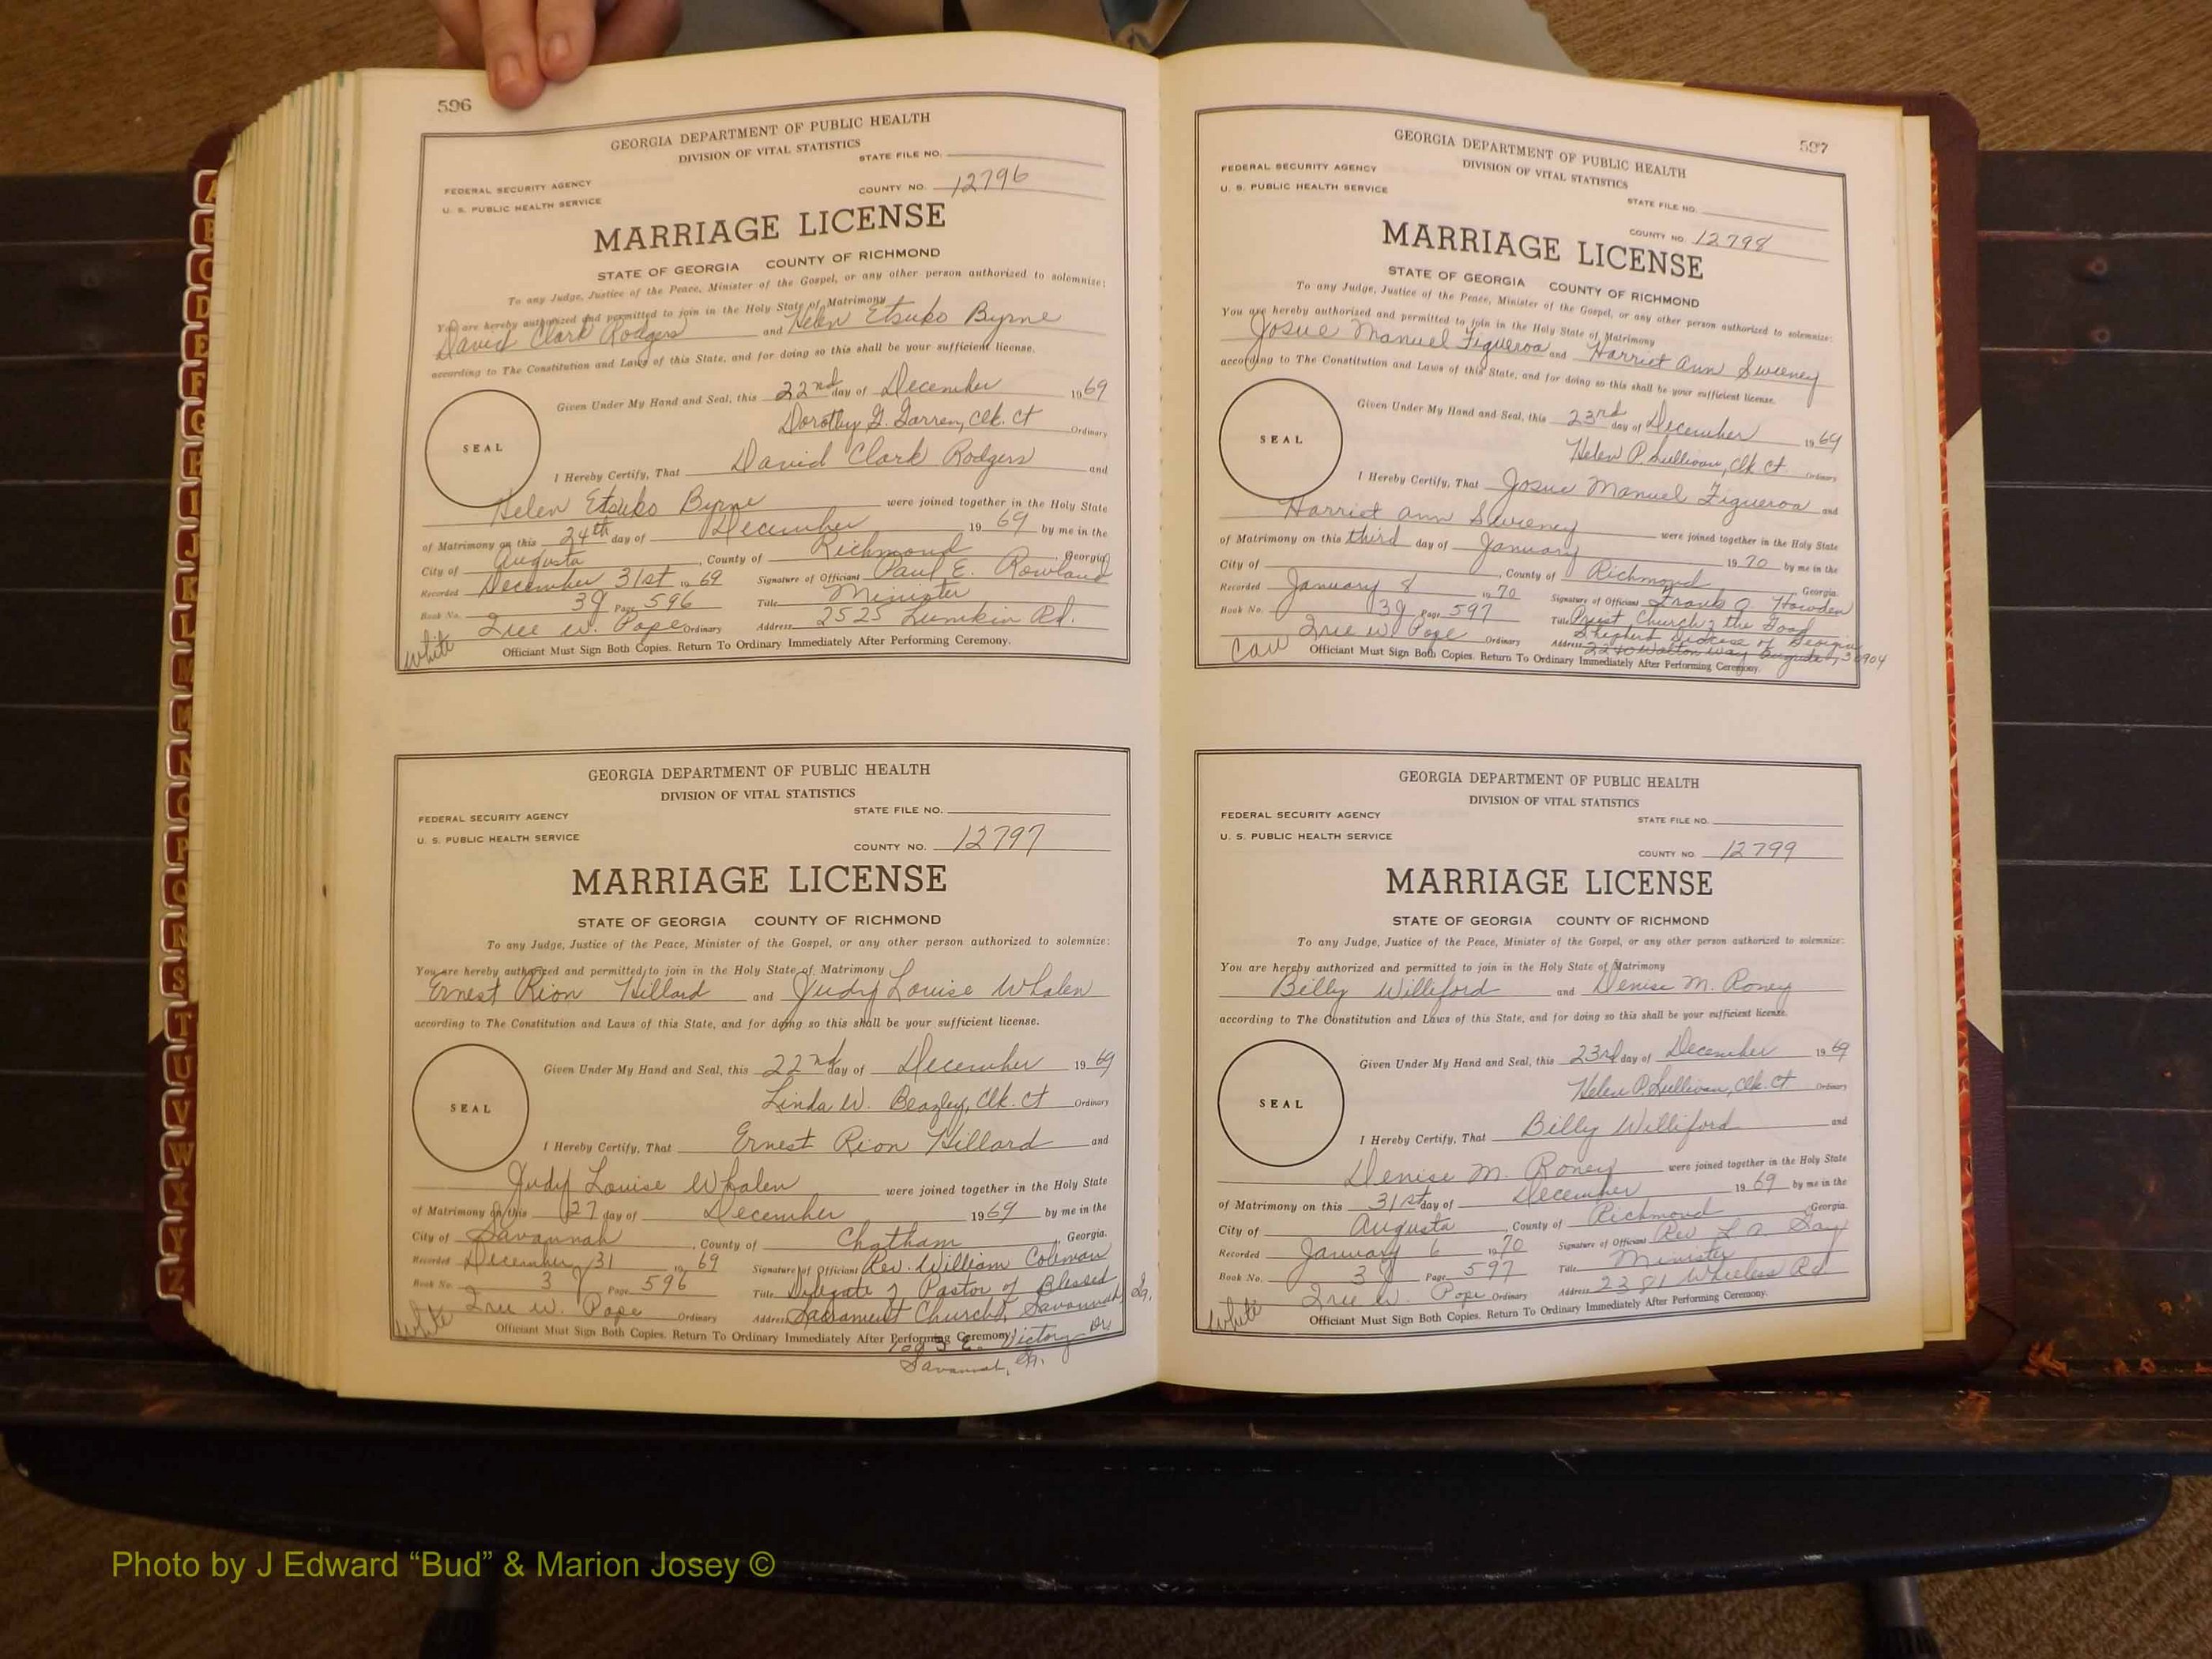 596
GEORGIA DEPARTMENT OF PUBLIC HEALTH
DIVISION OF VITAL STATISTICS
STATE FILE NO.
FEDERAL SECURITY AGENCY
U. S. PUBLIC HEALTH SERVICE
COUNTY NO. 12796
MARRIAGE LICENSE
STATE OF GEORGIA COUNTY OF RICHMOND
To any Judge, Justice of the Peace, Minister of the Gospel, or any other person authorized to solemnize:
You are hereby authorized and permitted to join in the Holy State of Matrimony
David Clark Rodgers and Helen Etsuko Byrne
according to The Constitution and Laws of this State, and for doing so this shall be your sufficient license.
Given Under My Hand and Seal, this 22nd day of December 1969
Dorothy G. Clk. Ct Ordinary
SEAL
I Hereby Certify, That David Clark Rodgers and
Helen Etsuko Byrne were joined together in the Holy State
of Matrimony on this 24th day of December 1969 by me in the
City of Augusta, County of Richmond, Georgia
Recorded December 31st 1969 Signature of Officiant Paul E. Rowland
Book No. 39 Page 596 Title Minister
Iree W. Pope Ordinary Address 2525 Lumkin Rd.
White Officiant Must Sign Both Copies. Return To Ordinary Immediately After Performing Ceremony.
GEORGIA DEPARTMENT OF PUBLIC HEALTH
DIVISION OF VITAL STATISTICS
STATE FILE NO.
FEDERAL SECURITY AGENCY
U. S. PUBLIC HEALTH SERVICE
COUNTY NO. 12797
MARRIAGE LICENSE
STATE OF GEORGIA COUNTY OF RICHMOND
To any Judge, Justice of the Peace, Minister of the Gospel, or any other person authorized to solemnize:
You are hereby authorized and permitted to join in the Holy State of Matrimony
Ernest Rion Hillard and Judy Louise Whalen
according to The Constitution and Laws of this State, and for doing so this shall be your sufficient license.
Given Under My Hand and Seal, this 22nd day of December 1969
Linda W. Beazley, Clk. Ct Ordinary
SEAL
I Hereby Certify, That Ernest Rion Hillard and
Judy Louise Whalen were joined together in the Holy State
of Matrimony on this 27 day of December 1969 by me in the
City of Savannah, County of Chatham, Georgia.
Recorded December 31 1969 Signature of Officiant Rev. William Coleman
Book No. 39 Page 596 Title Delegate of Pastor of Blessed
Iree W. Pope Ordinary Address Sacrament Church, Savannah, Ga.
White Officiant Must Sign Both Copies. Return To Ordinary Immediately After Performing Ceremony.
E. Victory Dr
Savannah, Ga.
597
GEORGIA DEPARTMENT OF PUBLIC HEALTH
DIVISION OF VITAL STATISTICS
FEDERAL SECURITY AGENCY
U. S. PUBLIC HEALTH SERVICE
STATE FILE NO.
COUNTY NO. 12798
MARRIAGE LICENSE
STATE OF GEORGIA COUNTY OF RICHMOND
To any Judge, Justice of the Peace, Minister of the Gospel, or any other person authorized to solemnize:
You are hereby authorized and permitted to join in the Holy State of Matrimony
Josue Manuel Figueroa and Harriet Ann Sweeney
according to The Constitution and Laws of this State, and for doing so this shall be your sufficient license.
Given Under My Hand and Seal, this 23rd day of December 1969
Helen P. Sullivan, Clk Ct Ordinary
SEAL
I Hereby Certify, That Josue Manuel Figueroa and
Harriet Ann Sweeney were joined together in the Holy State
of Matrimony on this third day of January 1970 by me in the
City of , County of Richmond Georgia.
Recorded January 8 1970 Signature of Officiant Frank Q. Howden
Book No. 39 Page 597 Title Priest Church of the Good
Iree W. Pope Ordinary Shepherd Diocese of Georgia
Address 2240 Walton Way Augusta, 30904
Cau Officiant Must Sign Both Copies. Return To Ordinary Immediately After Performing Ceremony.
GEORGIA DEPARTMENT OF PUBLIC HEALTH
DIVISION OF VITAL STATISTICS
FEDERAL SECURITY AGENCY
U. S. PUBLIC HEALTH SERVICE
STATE FILE NO.
COUNTY NO. 12799
MARRIAGE LICENSE
STATE OF GEORGIA COUNTY OF RICHMOND
To any Judge, Justice of the Peace, Minister of the Gospel, or any other person authorized to solemnize:
You are hereby authorized and permitted to join in the Holy State of Matrimony
Billy Williford and Denise M. Roney
according to The Constitution and Laws of this State, and for doing so this shall be your sufficient license.
Given Under My Hand and Seal, this 23rd day of December 1969
Helen P. Sullivan, Clk. Ct. Ordinary
SEAL
I Hereby Certify, That Billy Williford and
Denise M. Roney were joined together in the Holy State
of Matrimony on this 31st day of December 1969 by me in the
City of Augusta, County of Richmond, Georgia.
Recorded January 6 1970 Signature of Officiant Rev L. A. Gay
Book No. 39 Page 597 Title Minister
Iree W. Pope Ordinary Address 2381 Wheeless Rd.
White Officiant Must Sign Both Copies. Return To Ordinary Immediately After Performing Ceremony.
A
B
C
D
E
F
G
H
I
J
K
L
M
Mc
N
O
P
Q
R
S
T
U
V
W
X
Y
Z
Photo by J Edward “Bud” & Marion Josey ©